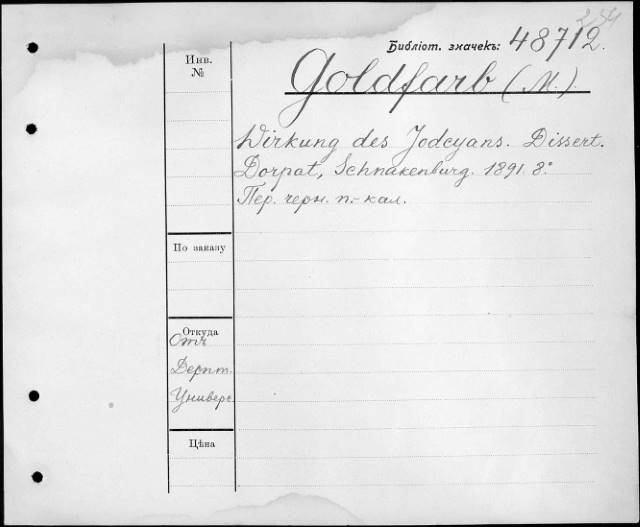 Библіот. значекъ: 48712.
Инв. №
Goldfarb (M.).
Wirkung des Jodcyans. Dissert.
Dorpat, Schnakenburg. 1891. 8º
Пер. черн. п.-кал.
По заказу
Откуда
Отъ
Дерпт.
Универс
Цѣна